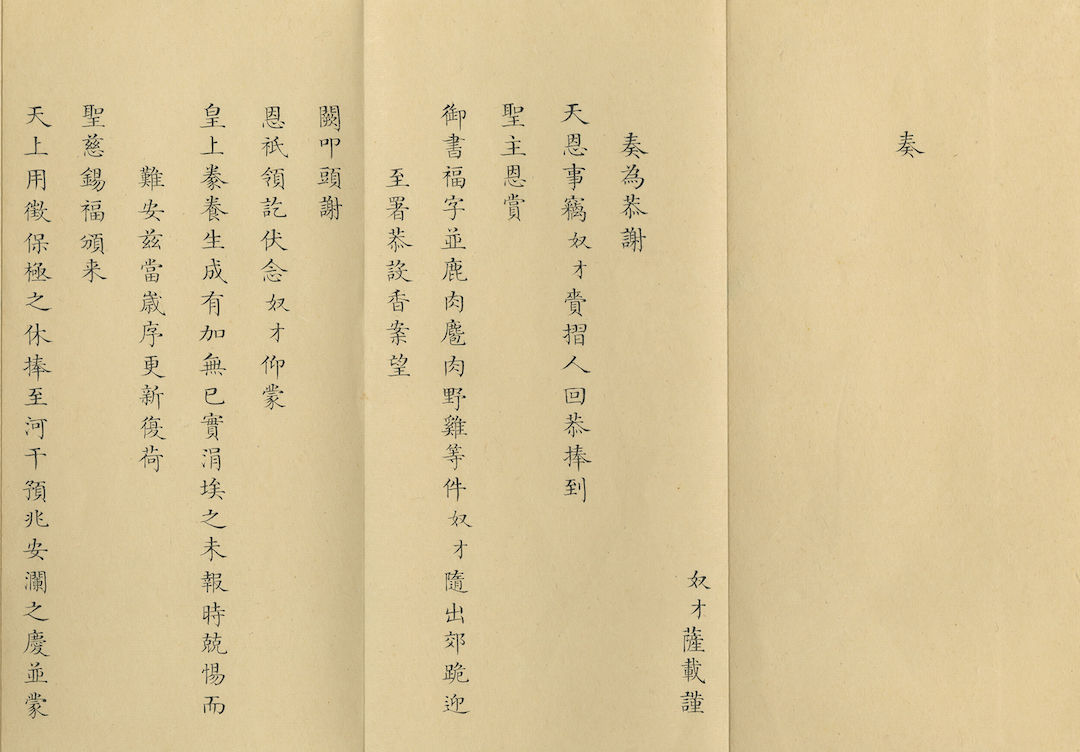 奏
奴才薩載謹
奏為恭謝
天恩事竊奴才賫摺人回恭捧到
聖主恩賞
御書福字並鹿肉麅肉野雞等件奴才隨出郊跪迎
至署恭設香案望
闕叩頭謝
恩祇領訖伏念奴才仰蒙
皇上豢養生成有加無已實涓埃之未報時兢惕而
難安兹當歲序更新復荷
聖慈錫福頒来
天上用徵保極之休捧至河干預兆安瀾之慶並蒙